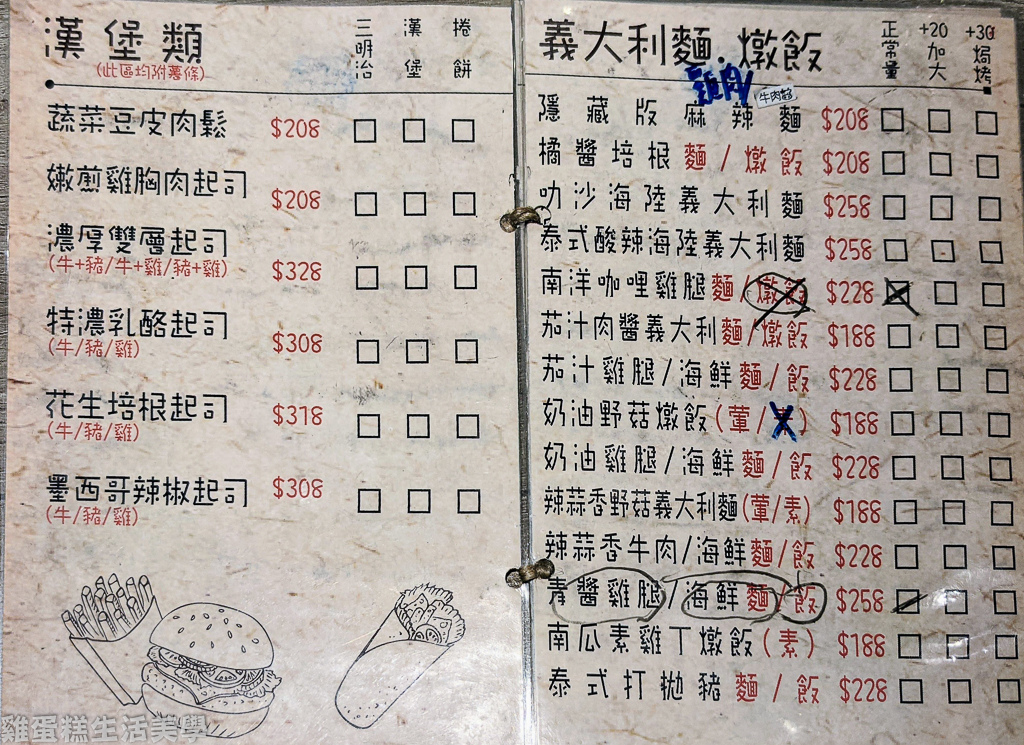 漢堡類
(此區均附薯條)
三明治 漢堡 捲餅
蔬菜豆皮肉鬆 $208
嫩煎雞胸肉起司 $208
濃厚雙層起司 $328
(牛+豬/牛+雞/豬+雞)
特濃乳酪起司 $308
(牛/豬/雞)
花生培根起司 $318
(牛/豬/雞)
墨西哥辣椒起司 $308
(牛/豬/雞)
義大利麵.燉飯
正常量 +20加大 +30焗烤
雞肉
隱藏版麻辣麵 $208
橘醬培根麵/燉飯 $208
叻沙海陸義大利麵 $258
泰式酸辣海陸義大利麵 $258
南洋咖哩雞腿麵/燉飯 $228
茄汁肉醬義大利麵/燉飯 $188
茄汁雞腿/海鮮麵/飯 $228
奶油野菇燉飯(葷/素) $188
奶油雞腿/海鮮麵/飯 $228
辣蒜香野菇義大利麵(葷/素) $188
辣蒜香牛肉/海鮮麵/飯 $228
青醬雞腿/海鮮麵/飯 $258
南瓜素雞丁燉飯(素) $188
泰式打拋豬麵/飯 $228
雞蛋糕生活美學